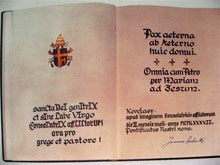 sancta Dei genitrix
et sine Labe Virgo
Consolatrix afflictorum
ora pro
grege et pastore!
Pax aeterna
ab Aeterno
huic domui.
Omnia cum Petro
per Mariam
ad Jesum.
Kevelaer
apud imaginem Consolatricis afflictorum
die II mensis maii anno MCMLXXXVII,
Pontificatus Nostri nono.
Joannes Paulus II